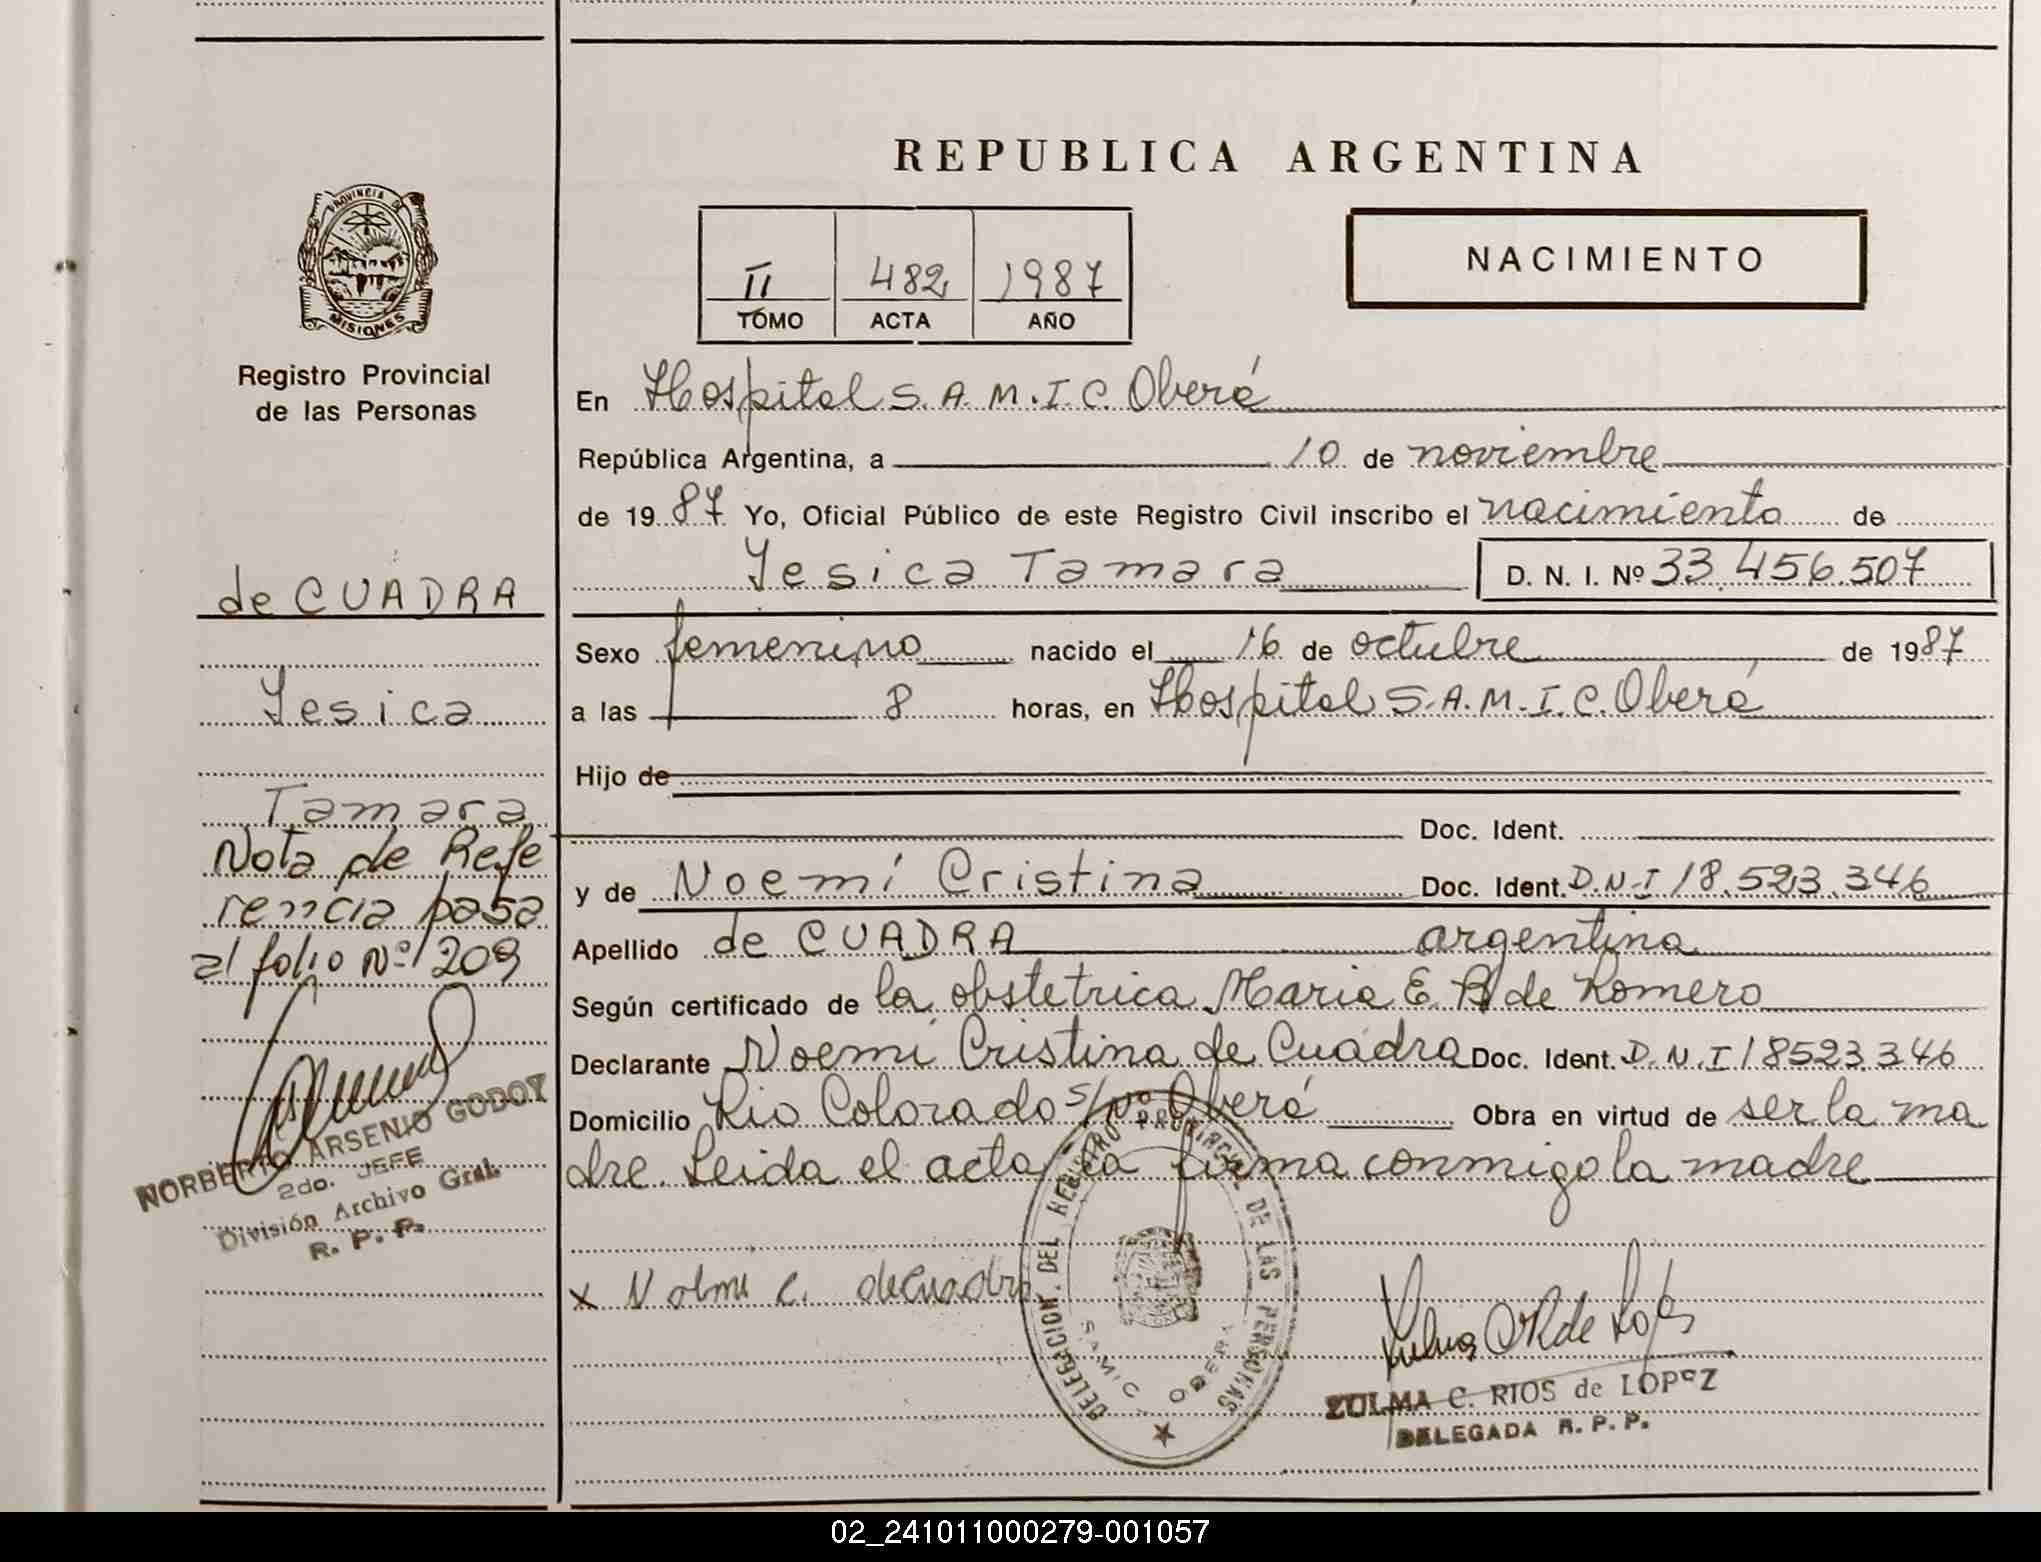 REPUBLICA ARGENTINA
PROVINCIA DE
MISIONES
Registro Provincial
de las Personas
II 482 1987
TOMO ACTA AÑO
NACIMIENTO
de CUADRA
Yesica
Tamara
Nota de Refe
rencia pasa
al folio Nº 209
NORBERTO ARSENIO GODOY
2do. JEFE
División Archivo Gral.
R. P. P.
En Hospital S.A.M.I.C. Oberá
República Argentina, a 10 de noviembre
de 1987 Yo, Oficial Público de este Registro Civil inscribo el nacimiento de
Yesica Tamara D. N. I. Nº 33.456.507
Sexo femenino nacido el 16 de octubre de 1987
a las 8 horas, en Hospital S.A.M.I.C. Oberá
Hijo de
Doc. Ident.
y de Noemí Cristina Doc. Ident. D.N.I 18.523.346
Apellido de CUADRA argentina
Según certificado de la obstetrica Maria E. R de Romero
Declarante Noemí Cristina de Cuadra Doc. Ident. D.N.I 18523.346
Domicilio Rio Colorado s/nº Oberá Obra en virtud de ser la ma
dre. Leida el acta la firma conmigo la madre
x Noemi C. deCuadra
DELEGACION DEL REGISTRO PROVINCIAL DE LAS PERSONAS
SAMIC OBERA
ZULMA C. RIOS de LOPEZ
DELEGADA R. P. P.
02_241011000279-001057